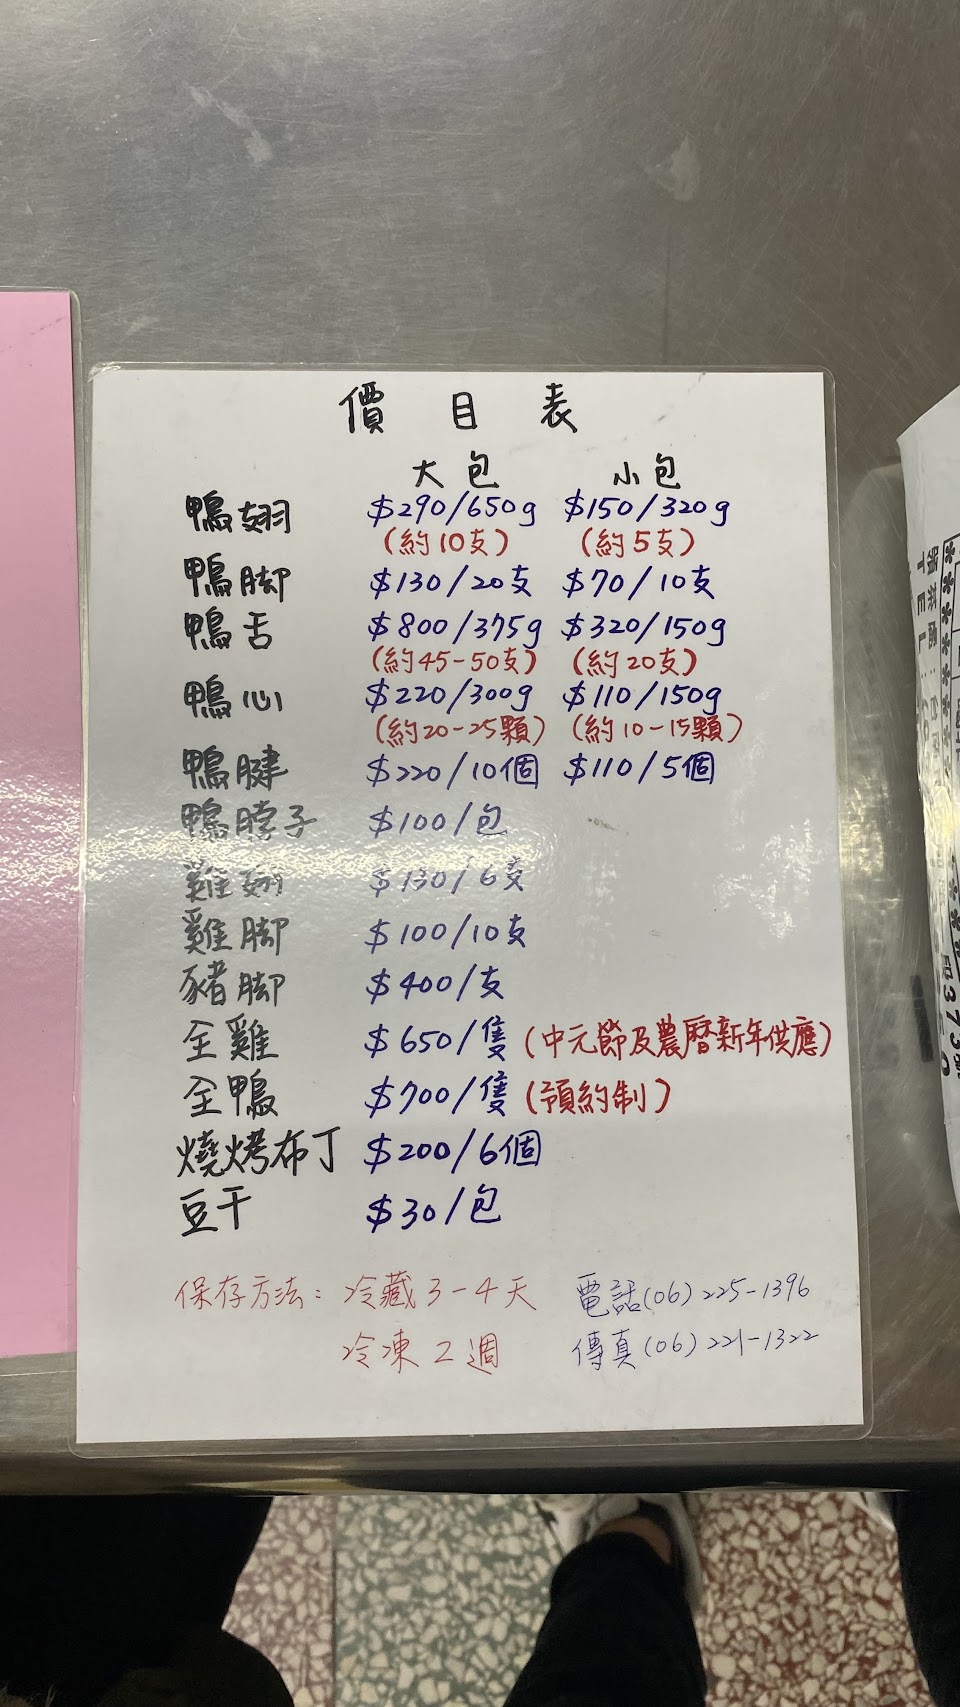 價目表
大包 小包
鴨翅 $290/650g $150/320g
(約10支) (約5支)
鴨脚 $130/20支 $70/10支
鴨舌 $800/375g $320/150g
(約45-50支) (約20支)
鴨心 $220/300g $110/150g
(約20-25顆) (約10-15顆)
鴨腱 $220/10個 $110/5個
鴨脖子 $100/包
雞翅 $130/6支
雞脚 $100/10支
豬脚 $400/支
全雞 $650/隻 (中元節及農曆新年供應)
全鴨 $700/隻 (預約制)
燒烤布丁 $200/6個
豆干 $30/包
保存方法: 冷藏3-4天 電話(06)225-1396
冷凍2週 傳真(06)221-1322